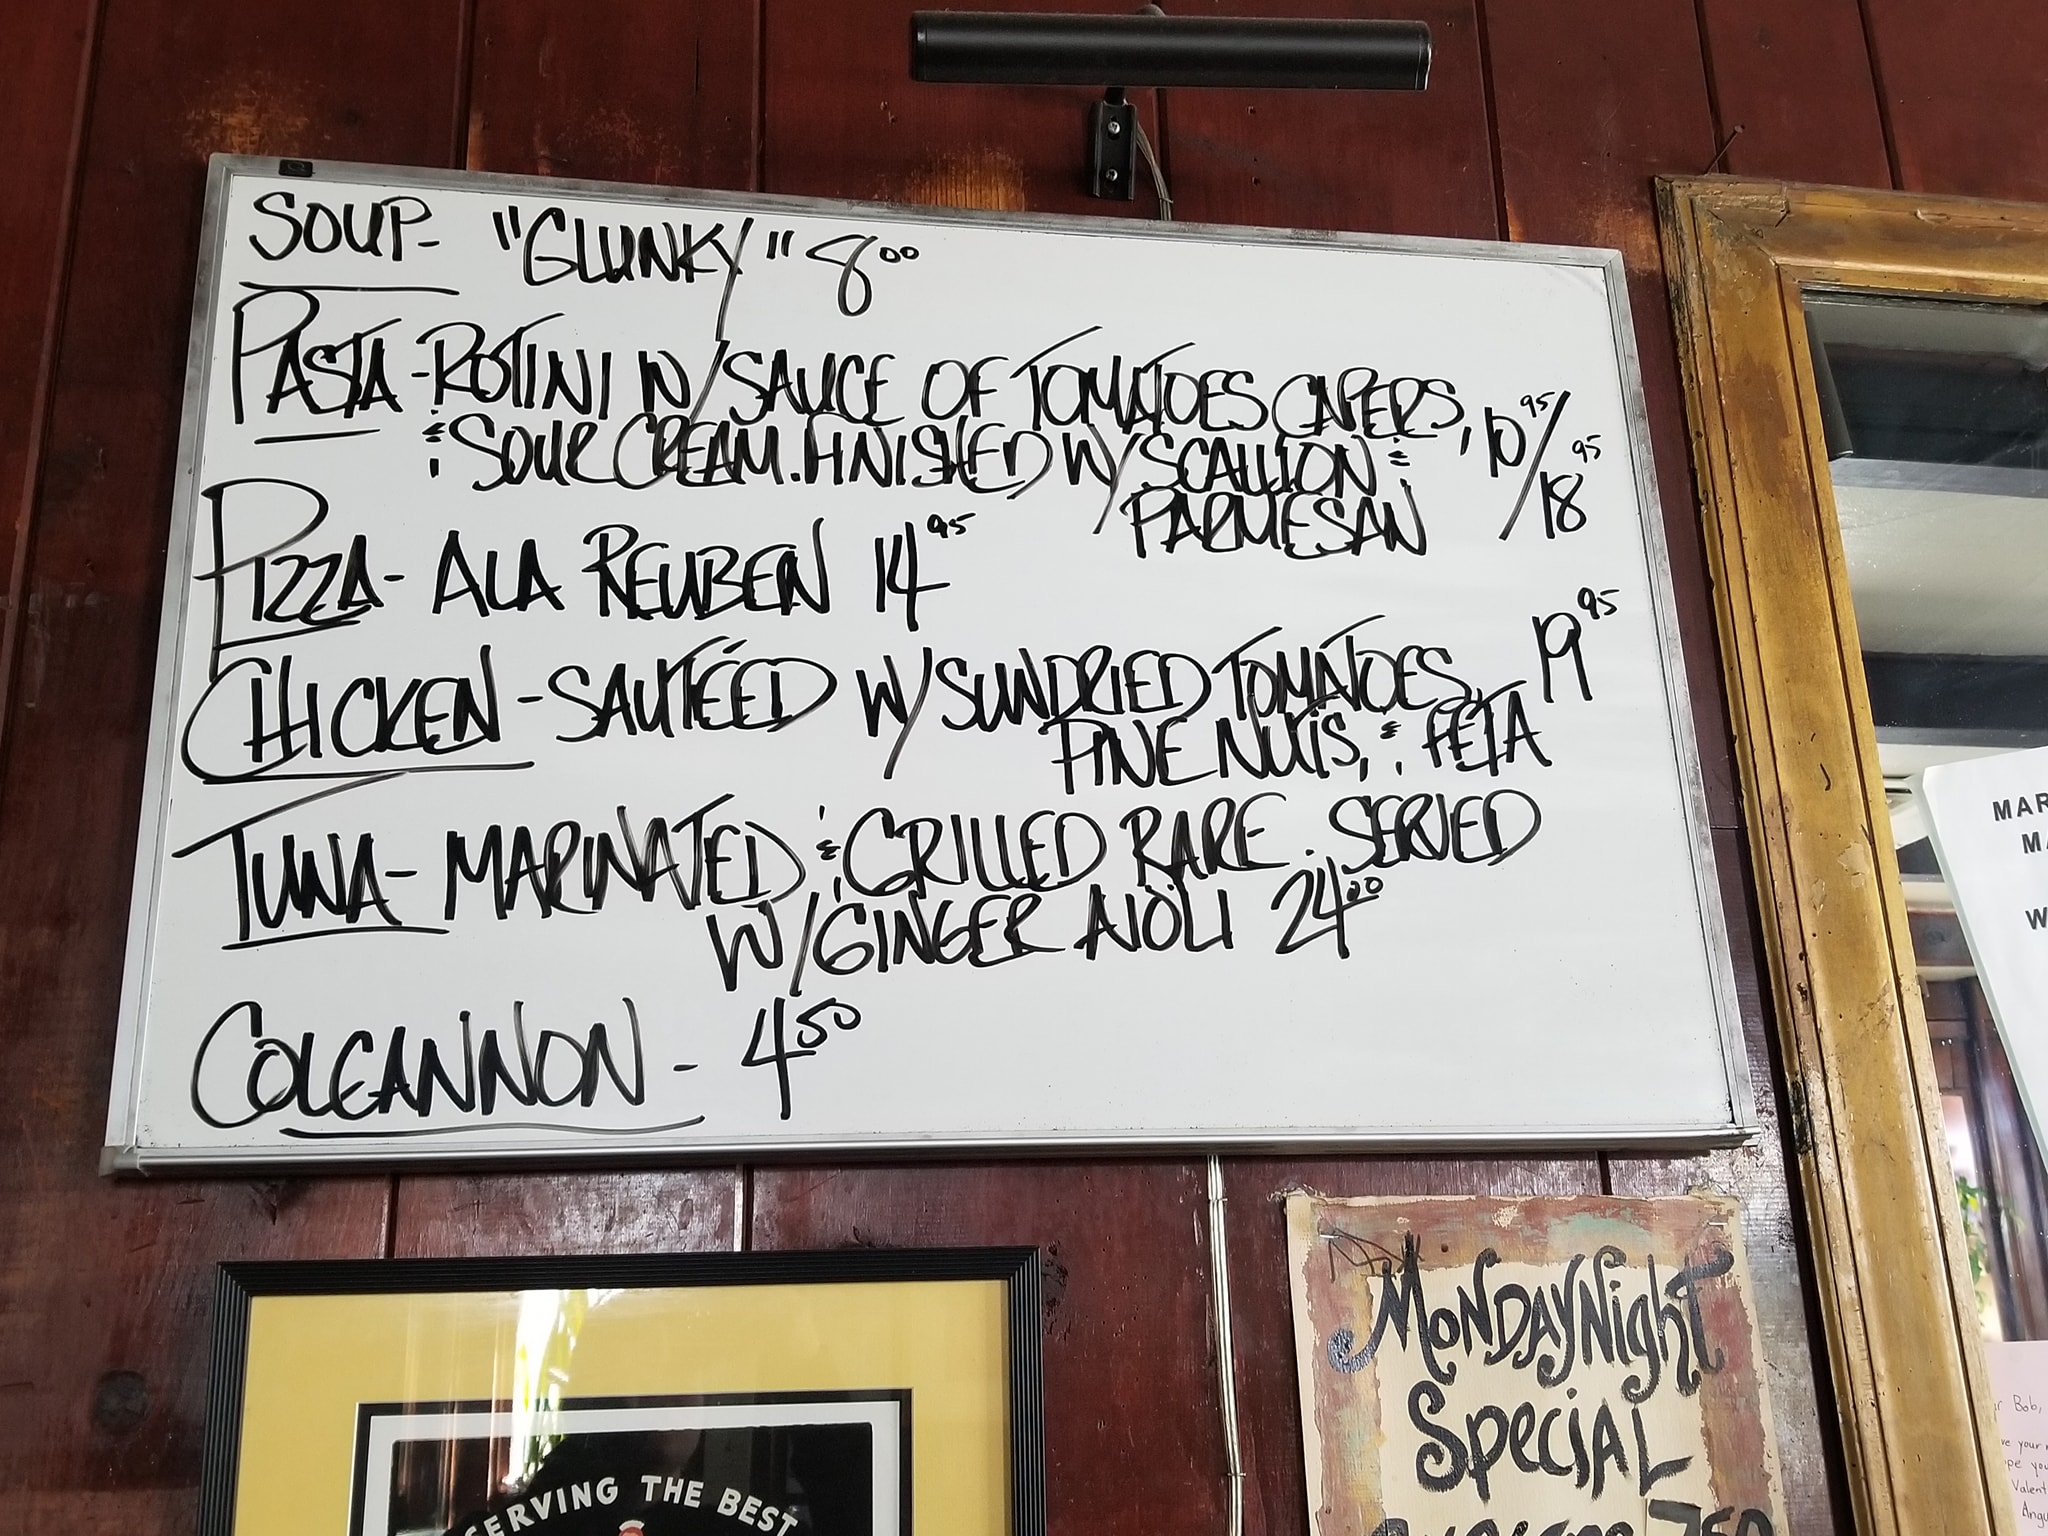 SOUP- "GLUNKY" 8.00
PASTA-ROTINI W/SAUCE OF TOMATOES CAPERS,
& SOUR CREAM. FINISHED W/SCALLION & 10.95/18.95
PARMESAN
PIZZA- ALA REUBEN 14.95
CHICKEN-SAUTÉED W/SUNDRIED TOMATOES, 19.95
PINE NUTS, & FETA
TUNA- MARINATED & GRILLED RARE. SERVED
W/GINGER AIOLI 24.00
COLCANNON- 4.50
MONDAY Night
SpeciAL
7.50
SERVING THE BEST
MAR
MA
W
Bob,
your
you
Valent
Angu